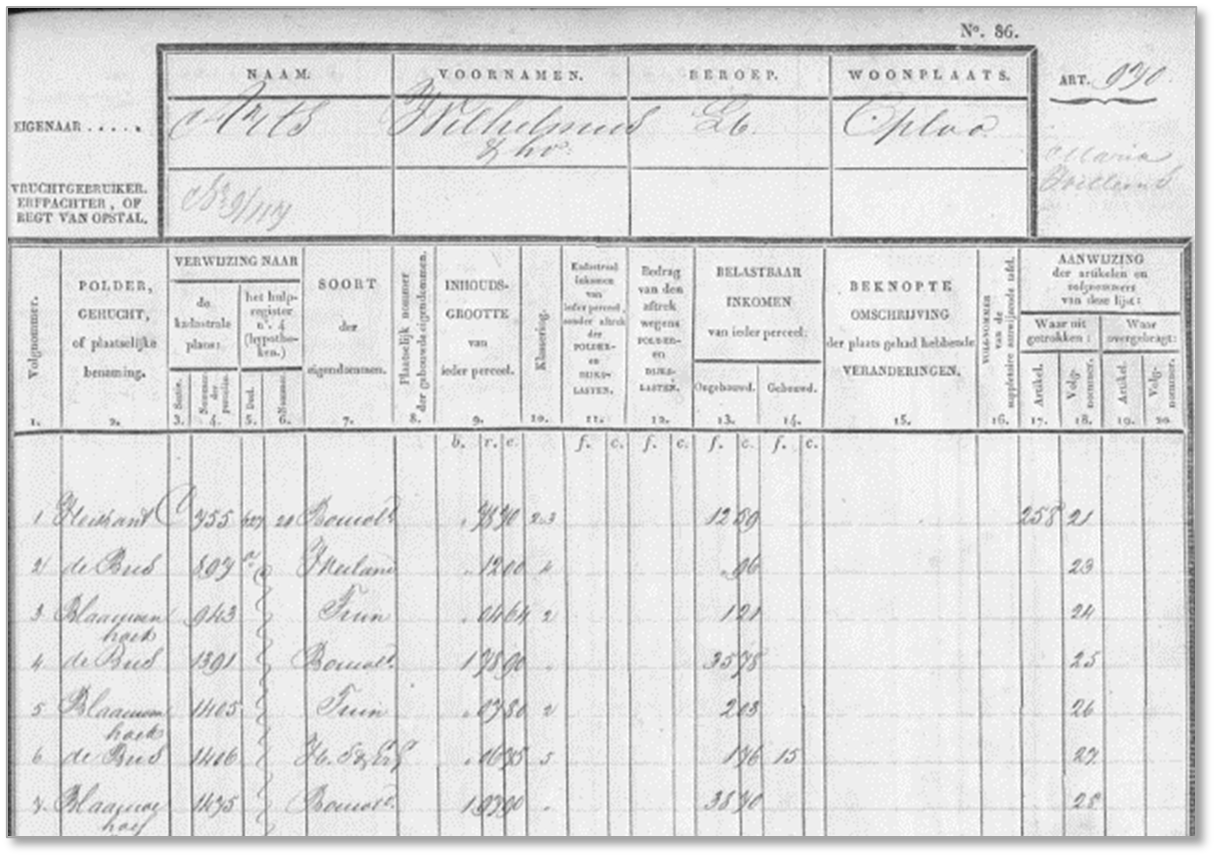 Nº. 86.
NAAM. VOORNAMEN. BEROEP. WOONPLAATS. ART. 970
EIGENAAR ..... Arts Wilhelmus Lb. Oploo
& ho:
Maria
Willems
VRUCHTGEBRUIKER.
ERFPACHTER, OF
REGT VAN OPSTAL.
Volgnommer.
1.
POLDER,
GEHUCHT,
of plaatselijke
benaming.
2.
VERWIJZING NAAR
de
kadastrale
plans:
Sectie.
3.
Nommer
der
perceelen.
4.
het hulp-
register
nº. 4
(hypothe-
ken.)
Deel.
5.
Nommer.
6.
SOORT
der
eigendommen.
7.
Plaatselijk nommer
der gebouwde eigendommen.
8.
INHOUDS-
GROOTTE
van
ieder perceel.
9.
Klassering.
10.
Kadastraal
inkomen
van
ieder perceel,
zonder aftrek
der
POLDER-
en
DIJKS-
LASTEN.
11.
Bedrag
van den
aftrek
wegens
POLDER-
en
DIJKS-
LASTEN.
12.
BELASTBAAR
INKOMEN
van ieder perceel.
Ongebouwd.
13.
Gebouwd.
14.
BEKNOPTE
OMSCHRIJVING
der plaats gehad hebbende
VERANDERINGEN.
15.
VOLG-NOMMER
van de
suppletoire aanwijzende tafel.
16.
AANWIJZING
der artikelen en
volgnommers
van deze lijst:
Waar uit
getrokken:
Artikel.
17.
Volg-
nommer.
18.
Waar
overgebragt:
Artikel.
19.
Volg-
nommer.
20.
b. r. e. f. c. f. c. f. c. f. c.
1 C 755 627 Bouwld. 7870 2.3 1259 258 21
2 de Bus 897 1200 4 96 23
3 Blaauwen 943 Tuin 0464 2 121 24
hoek
4 de Bus 1391 Bouwld. 1 7890 3578 25
5 Blaauwen 1405 Tuin 0780 2 203 26
hoek
6 de Bus 1406 0675 5 176 15 27
7 1475 Bouwld. 1 9790 3870 28